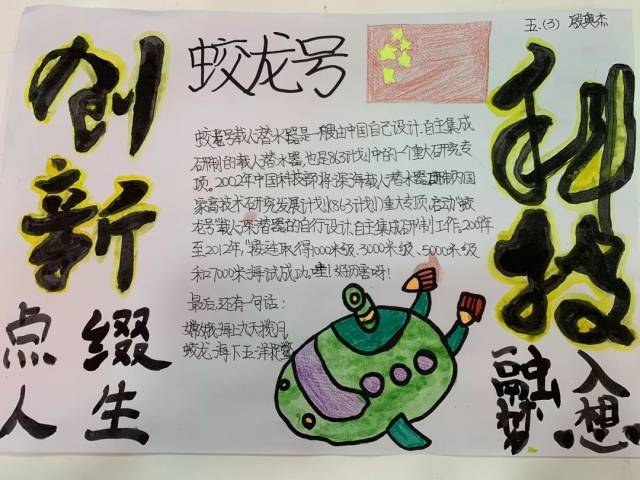 五.(3) 殷奥杰
蛟龙号
创新
科技
蛟龙号载人潜水器是一艘由中国自己设计、自主集成
研制的载人潜水器,也是863计划中的一个重大研究专
项。2002年中国科技部将深海载人潜水器研制列为国
家高技术研究发展计划(863计划)重大专项,启动“蛟
龙号”载人深潜器的自行设计、自主集成研制工作。2009年
至2012年,接连取得1000米级、3000米级、5000米级
和7000米海试成功。哇!好厉害呀!
最后,还有一句话:
嫦娥,海上九天揽月
蛟龙,海下五洋捉鳖
点缀
人生
融入
梦想